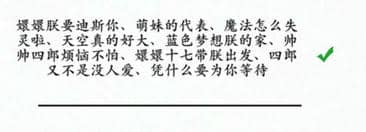 嬛嬛朕要迪斯你、萌妹的代表、魔法怎么失
灵啦、天空真的好大、蓝色梦想朕的家、帅
帅四郎烦恼不怕、嬛嬛十七带朕出发、四郎
又不是没人爱、凭什么要为你等待